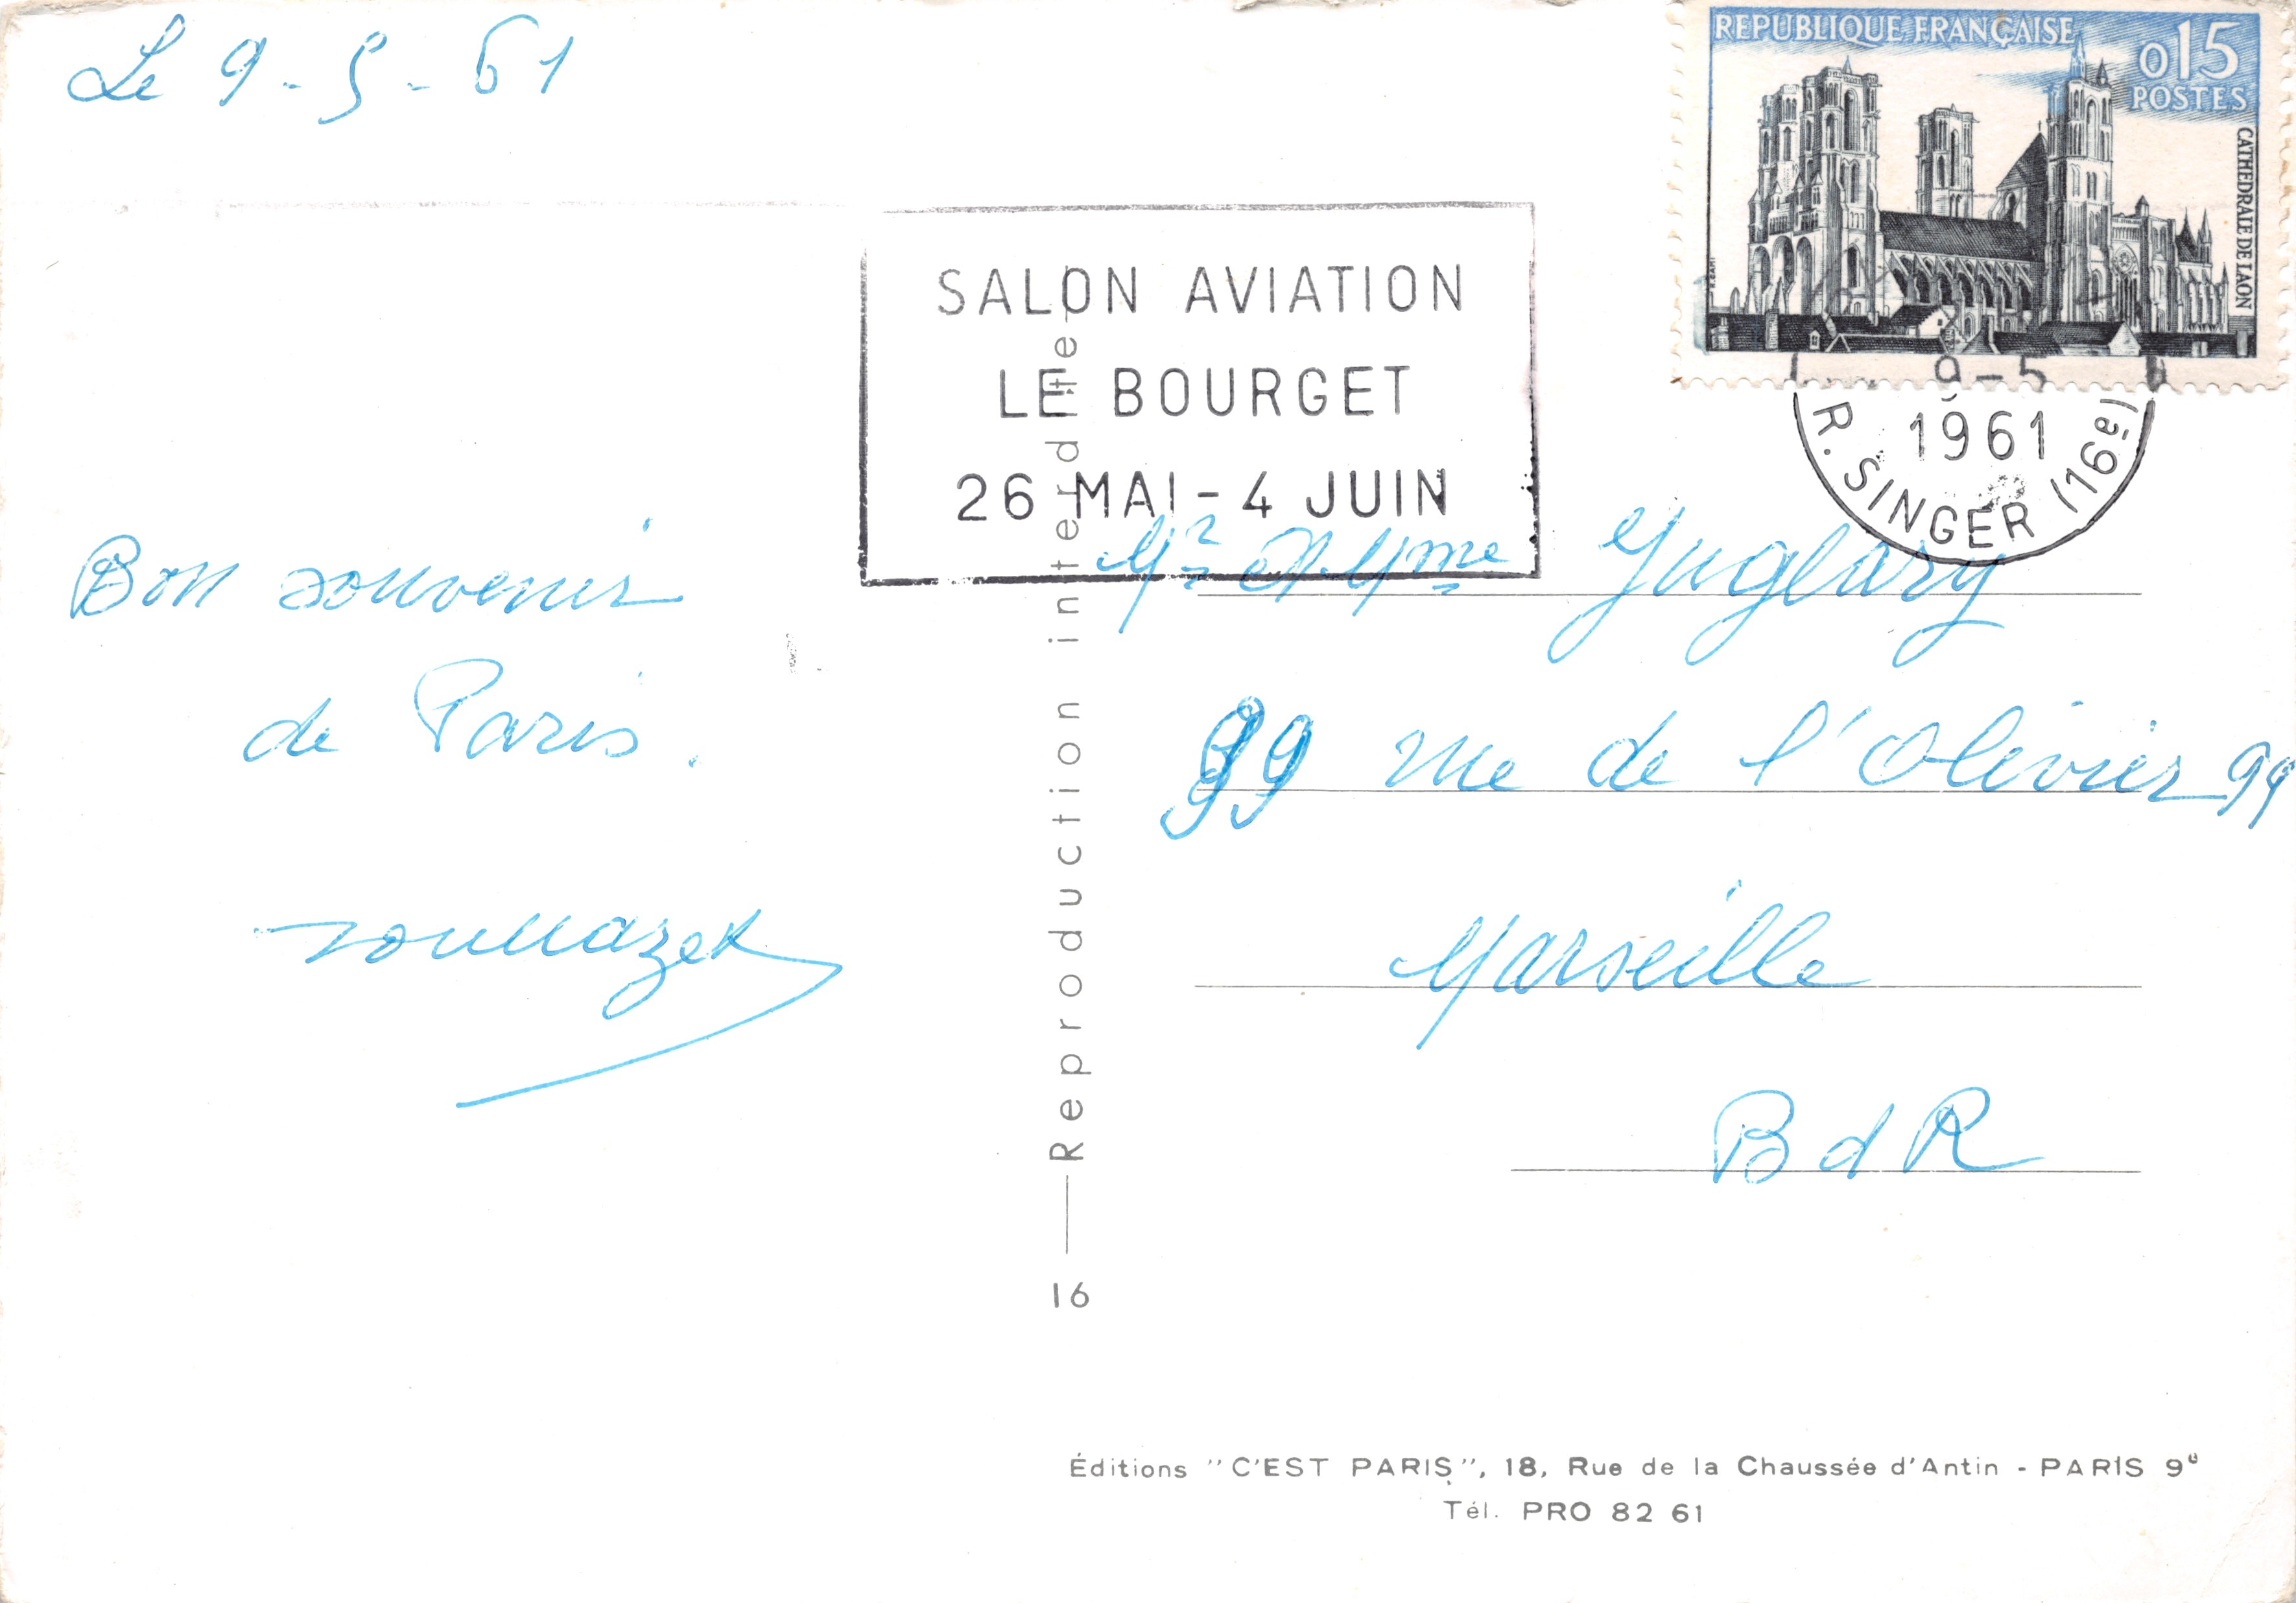 Le 9-5-61
REPUBLIQUE FRANÇAISE
0,15
POSTES
CATHEDRALE DE LAON
SALON AVIATION
LE BOURGET
26 MAI - 4 JUIN
9-5
1961
R. SINGER (16e)
Bon souvenir
de Paris.
Mr et Mme Juglary
99 rue de l'Olivier 99
Marseille
BdR
Reproduction interdite
16
Éditions "C'EST PARIS", 18, Rue de la Chaussée d'Antin - PARIS 9e
Tél. PRO 82 61